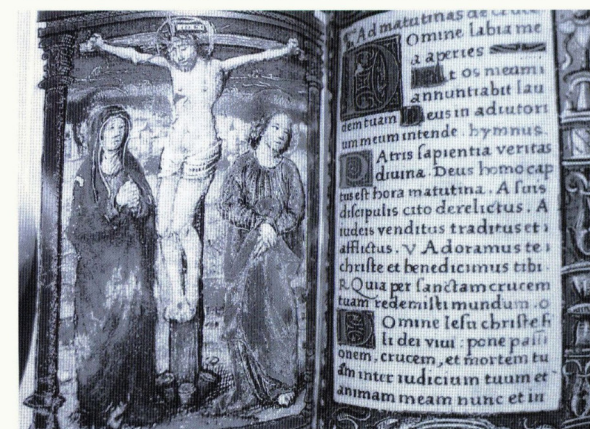 Ad matutinas de cruce
Omine labia me
a aperies
Et os meum
annuntiabit lau
dem tuam Deus in adiutori
um meum intende. hymnus.
Patris sapientia veritas
diuina. Deus homo cap
tus est hora matutina. A suis
discipulis cito derelictus. A
iudeis venditus traditus et
afflictus. V Adoramus te
christe et benedicimus tibi.
R. Quia per sanctam crucem
tuam redemisti mundum. o
Domine Iesu christe fi
li dei viui: pone passi
onem, crucem, et mortem tu
am inter iudicium tuum et
animam meam nunc et in